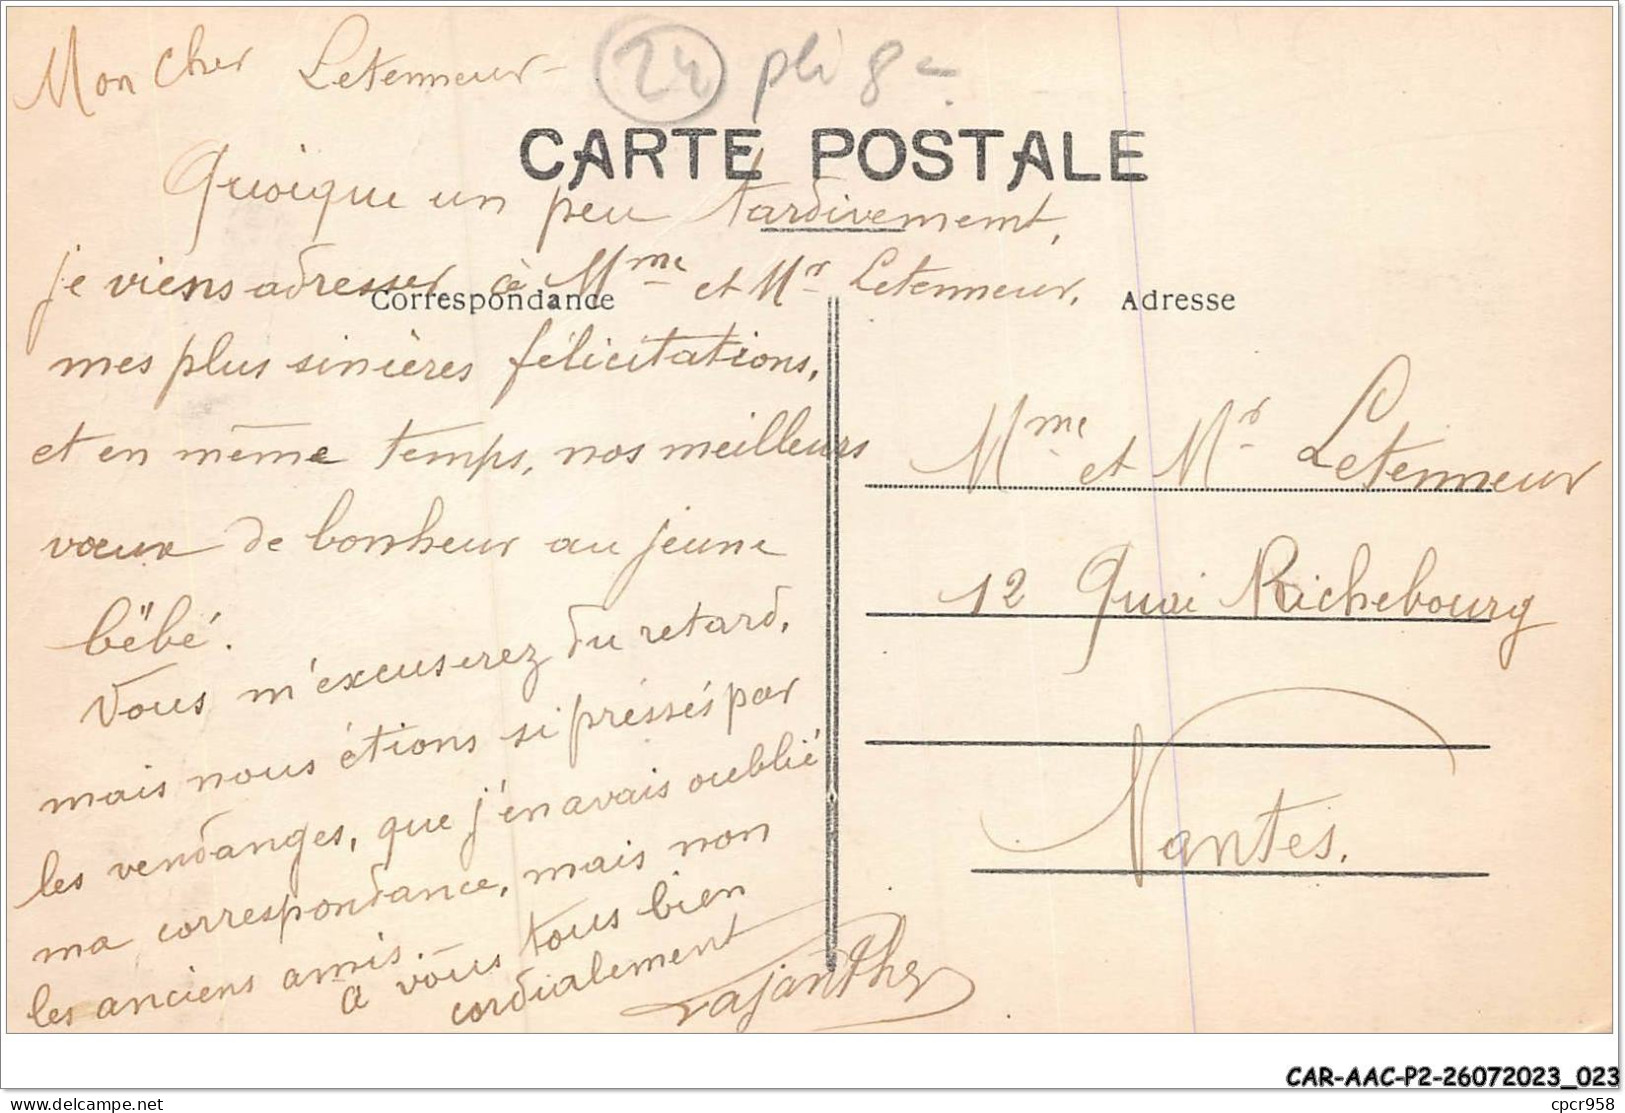 Mon cher Letenneur -
24 pli g -
CARTE POSTALE
Quoique un peu tardivement,
je viens adresser à Mme et Mr Letenneur,
Correspondance
Adresse
mes plus sincères félicitations,
et en même temps, nos meilleurs
vœux de bonheur au jeune
bébé.
Vous m'excuserez du retard,
mais nous étions si préssés par
les vendanges, que j'en avais oublié
ma correspondance, mais non
les anciens amis.
a vous tous bien
cordialement
Mme et Mr Letenneur
12 Quai Richebourg
Nantes.
CAR-AAC-P2-26072023_023
delcampe.net
cpcr958